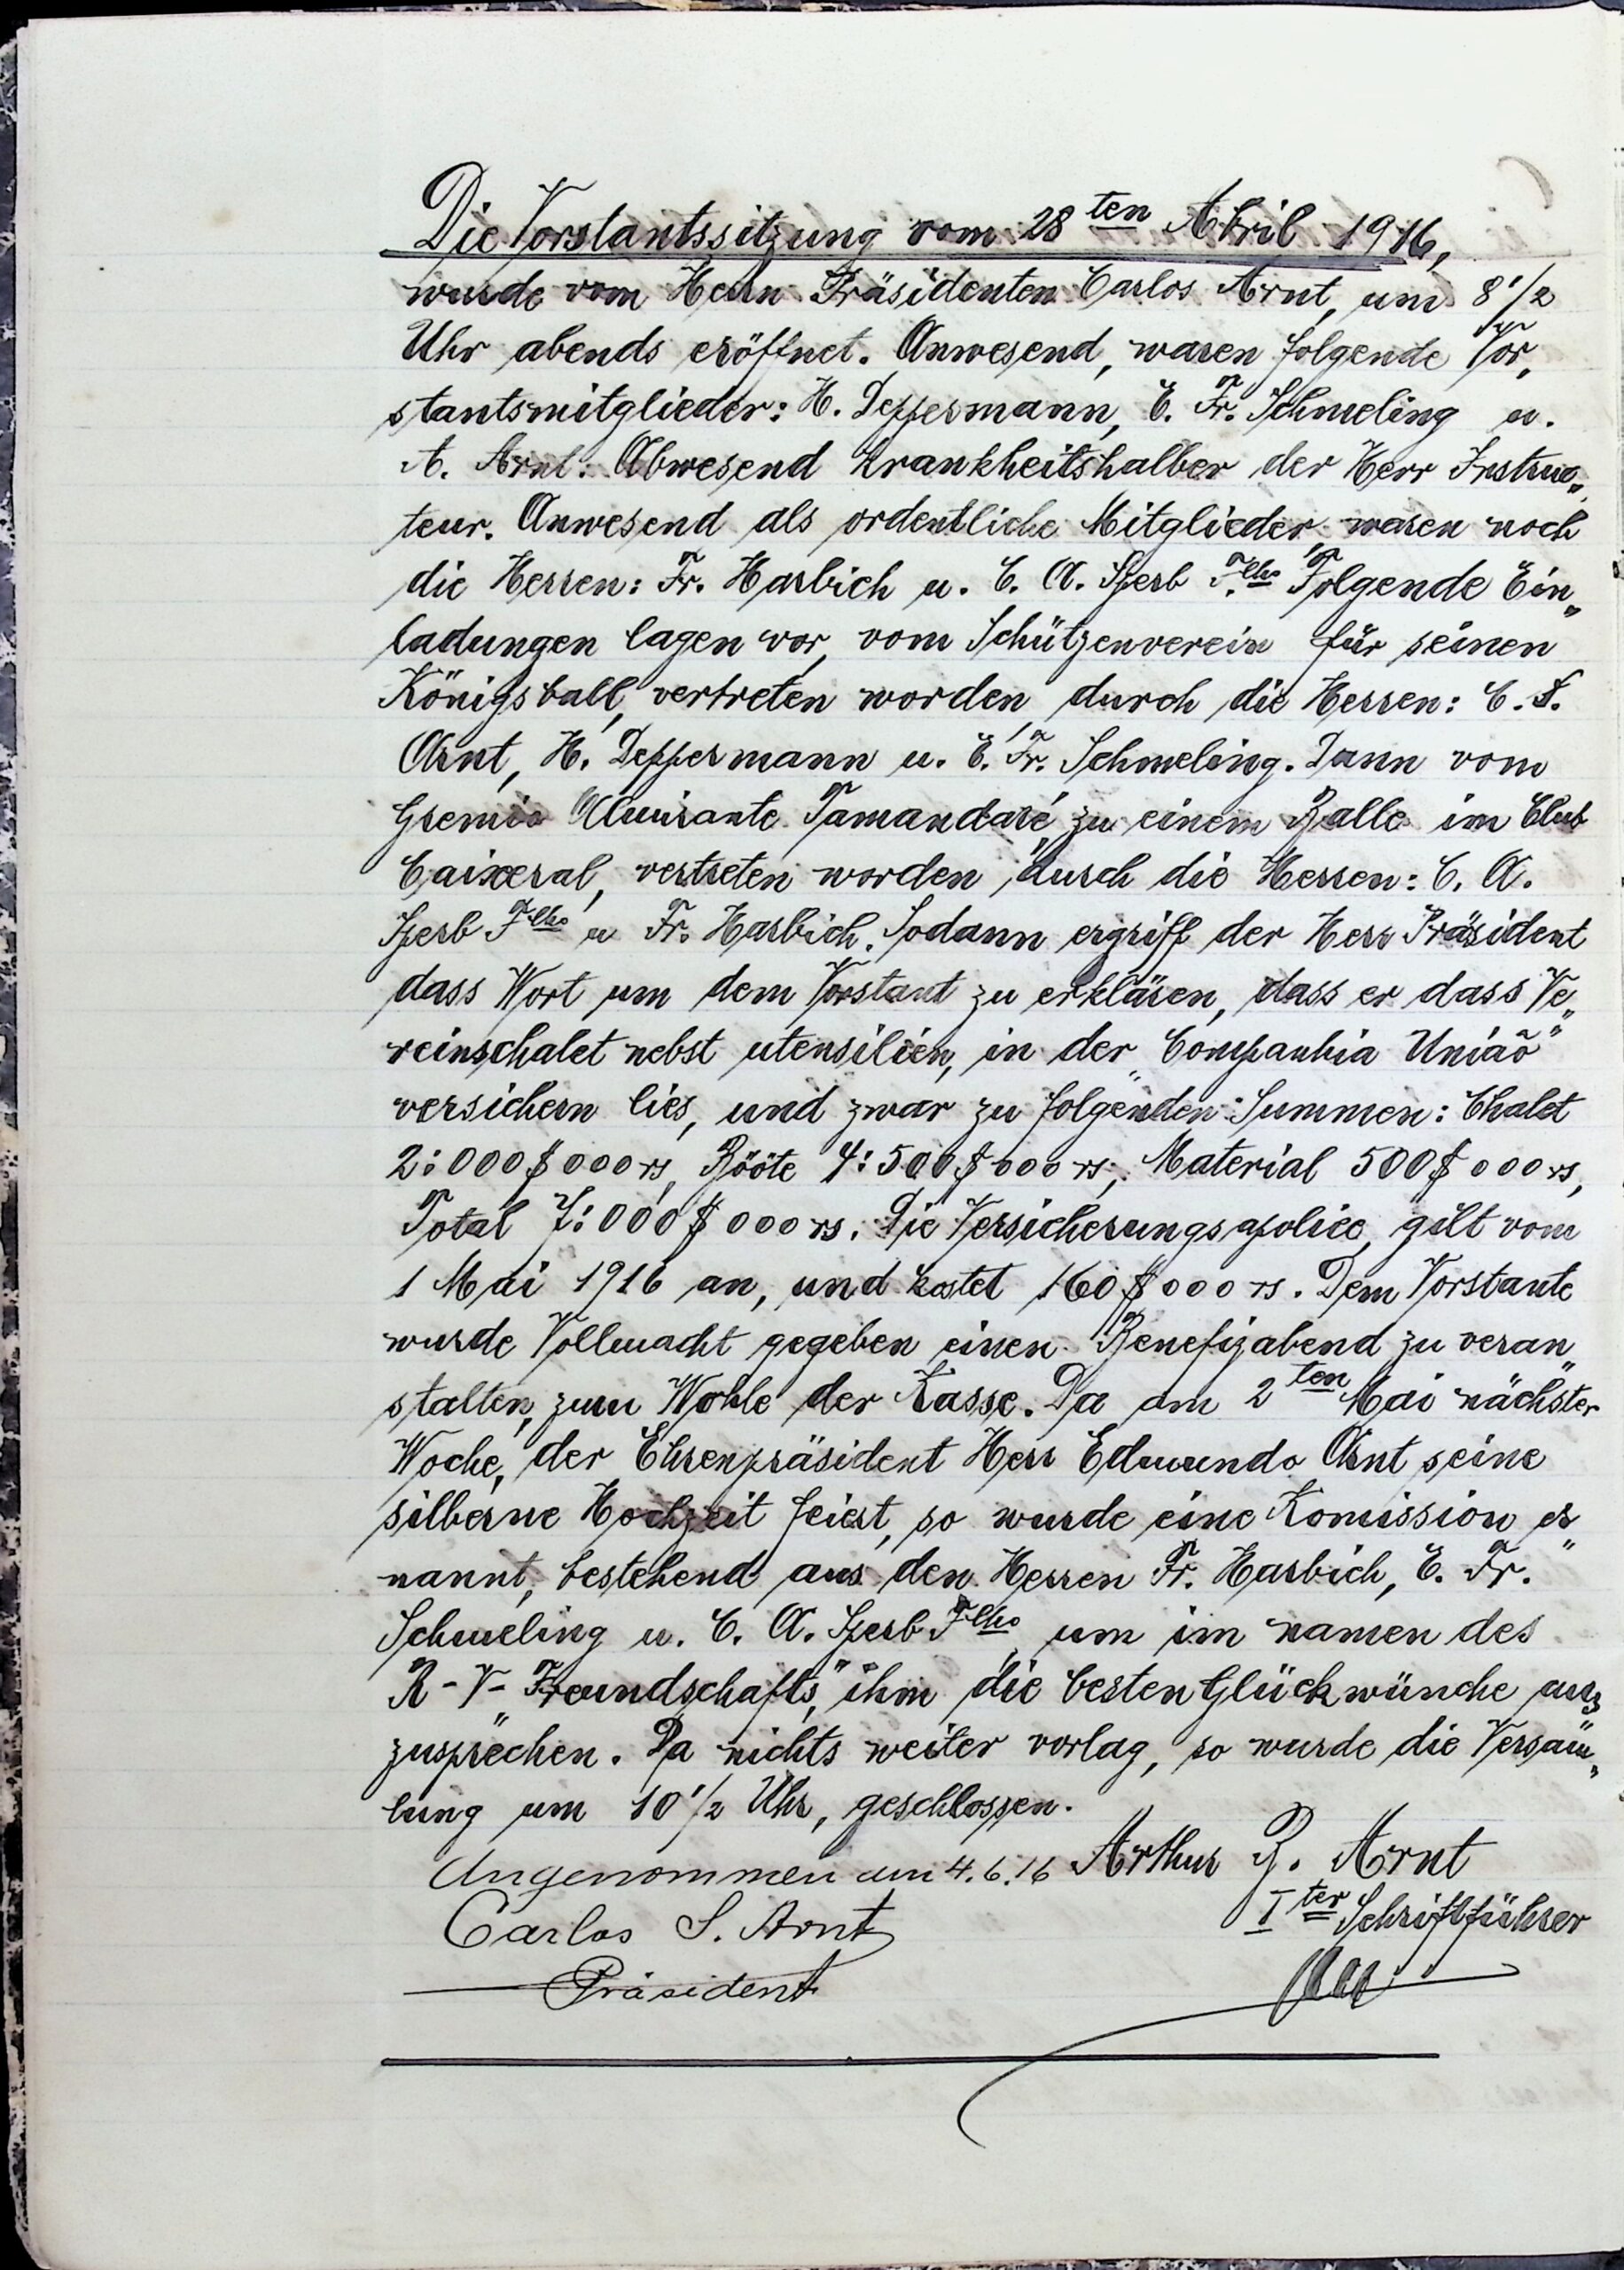 Die Vorstantssitzung vom 28ten April 1916,
wurde vom Herrn Präsidenten Carlos Arnt, um 8 1/2
Uhr abends eröffnet. Anwesend, waren folgende Vor„
stantsmitglieder: H. Deppermann, E. Fr. Schmeling u.
A. Arnt. Abwesend krankheitshalber der Herr Instruc„
teur. Anwesend als ordentliche Mitglieder waren noch
die Herren: Fr. Harbich u. C. A. Sperb Flho Folgende Ein„
ladungen lagen vor, vom Schützenverein für seinen
Königsball, vertreten worden durch die Herren: C. S.
Arnt, H. Deppermann u. E. Fr. Schmeling. Dann vom
Gremio Almirante Tamandaré, zu einem Balle im Club
Caixeral, vertreten worden durch die Herren: C. A.
Sperb Flho u Fr. Harbich. Sodann ergriff der Herr Präsident
dass Wort um dem Vorstant zu erklären, dass er dass Ve„
reinschalet nebst utensilien, in der „Companhia União"
versichern lies, und zwar zu folgenden Summen: Chalet
2:000$000 rs, Bööte 4:500$000 rs, Material 500$000 rs,
Total 7:000$000 rs. Die Versicherungsapolice, gilt vom
1 Mai 1916 an, und kostet 160$000 rs. Dem Vorstante
wurde Vollmacht gegeben einen Benefizabend zu veran„
stalten, zum Wohle der Kasse. Da am 2ten Mai nächster
Woche, der Ehrenpräsident Herr Edmundo Arnt seine
silberne Hochzeit feiert, so wurde eine Komission er„
nannt, bestehend aus den Herren Fr. Harbich, E. Fr.
Schmeling u. C. A. Sperb Flho, um im namen des
R-V-„Freundschafts," ihm die besten Glückwünche aus„
zusprechen. Da nichts weiter vorlag, so wurde die Versam̄„
lung um 10 1/2 Uhr, geschlossen.
Angenommen am 4.6.16 Arthur B. Arnt
Carlos S. Arnt Iter Schriftführer
Präsident